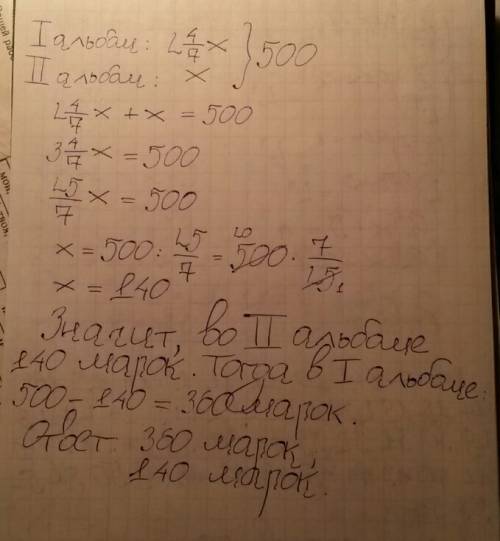 I альбом: 2 4/7 x } 500
II альбом: x
2 4/7 x + x = 500
3 4/7 x = 500
25/7 x = 500
x = 500 : 25/7 = 500 20 · 7/25 1
x = 140
Значит, во II альбоме
140 марок. Тогда в I альбоме:
500 - 140 = 360 марок.
Ответ 360 марок,
140 марок.